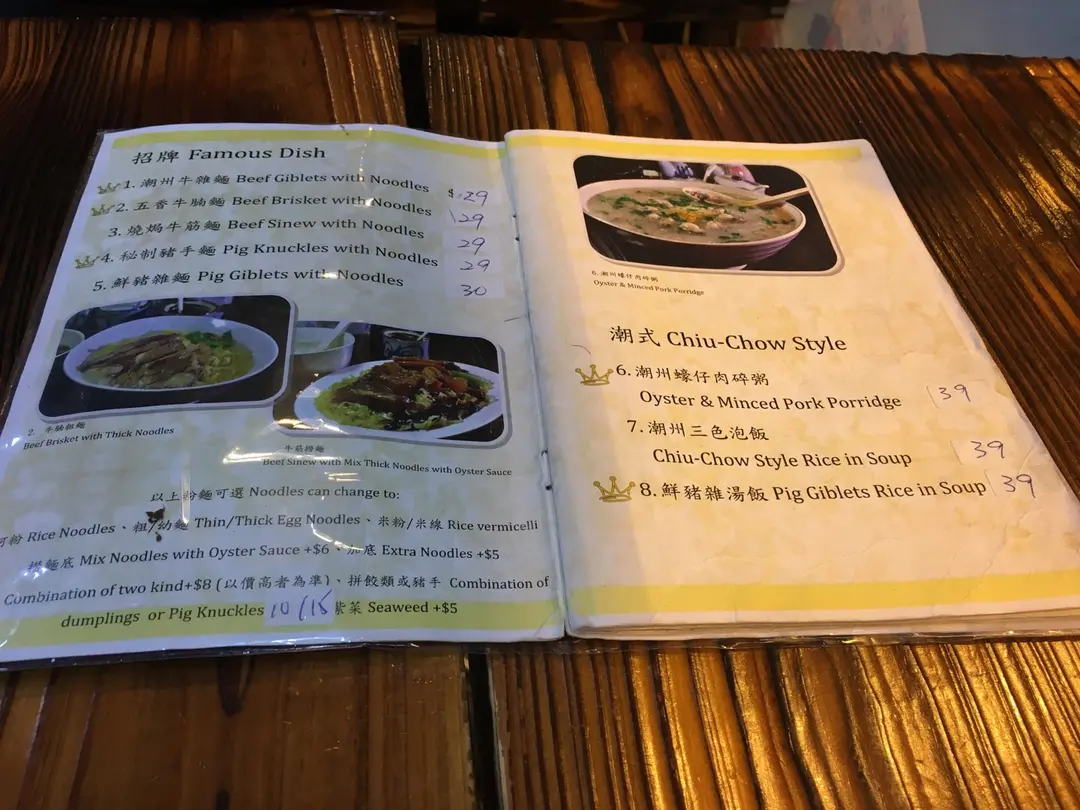 招牌 Famous Dish
1. 潮州牛雜麵 Beef Giblets with Noodles $29
2. 五香牛腩麵 Beef Brisket with Noodles 29
3. 燒焗牛筋麵 Beef Sinew with Noodles 29
4. 秘制豬手麵 Pig Knuckles with Noodles 29
5. 鮮豬雜麵 Pig Giblets with Noodles 30
2. 牛腩粗麵
Beef Brisket with Thick Noodles
牛筋撈麵
Beef Sinew with Mix Thick Noodles with Oyster Sauce
以上粉麵可選 Noodles can change to:
河粉 Rice Noodles、粗/幼麵 Thin/Thick Egg Noodles、米粉/米線 Rice vermicelli
撈麵底 Mix Noodles with Oyster Sauce +$6、加底 Extra Noodles +$5
Combination of two kind+$8 (以價高者為準)、拼餃類或豬手 Combination of
dumplings or Pig Knuckles 10/15 紫菜 Seaweed +$5
6. 潮州蠔仔肉碎粥
Oyster & Minced Pork Porridge
潮式 Chiu-Chow Style
6. 潮州蠔仔肉碎粥
Oyster & Minced Pork Porridge 39
7. 潮州三色泡飯
Chiu-Chow Style Rice in Soup 39
8. 鮮豬雜湯飯 Pig Giblets Rice in Soup 39